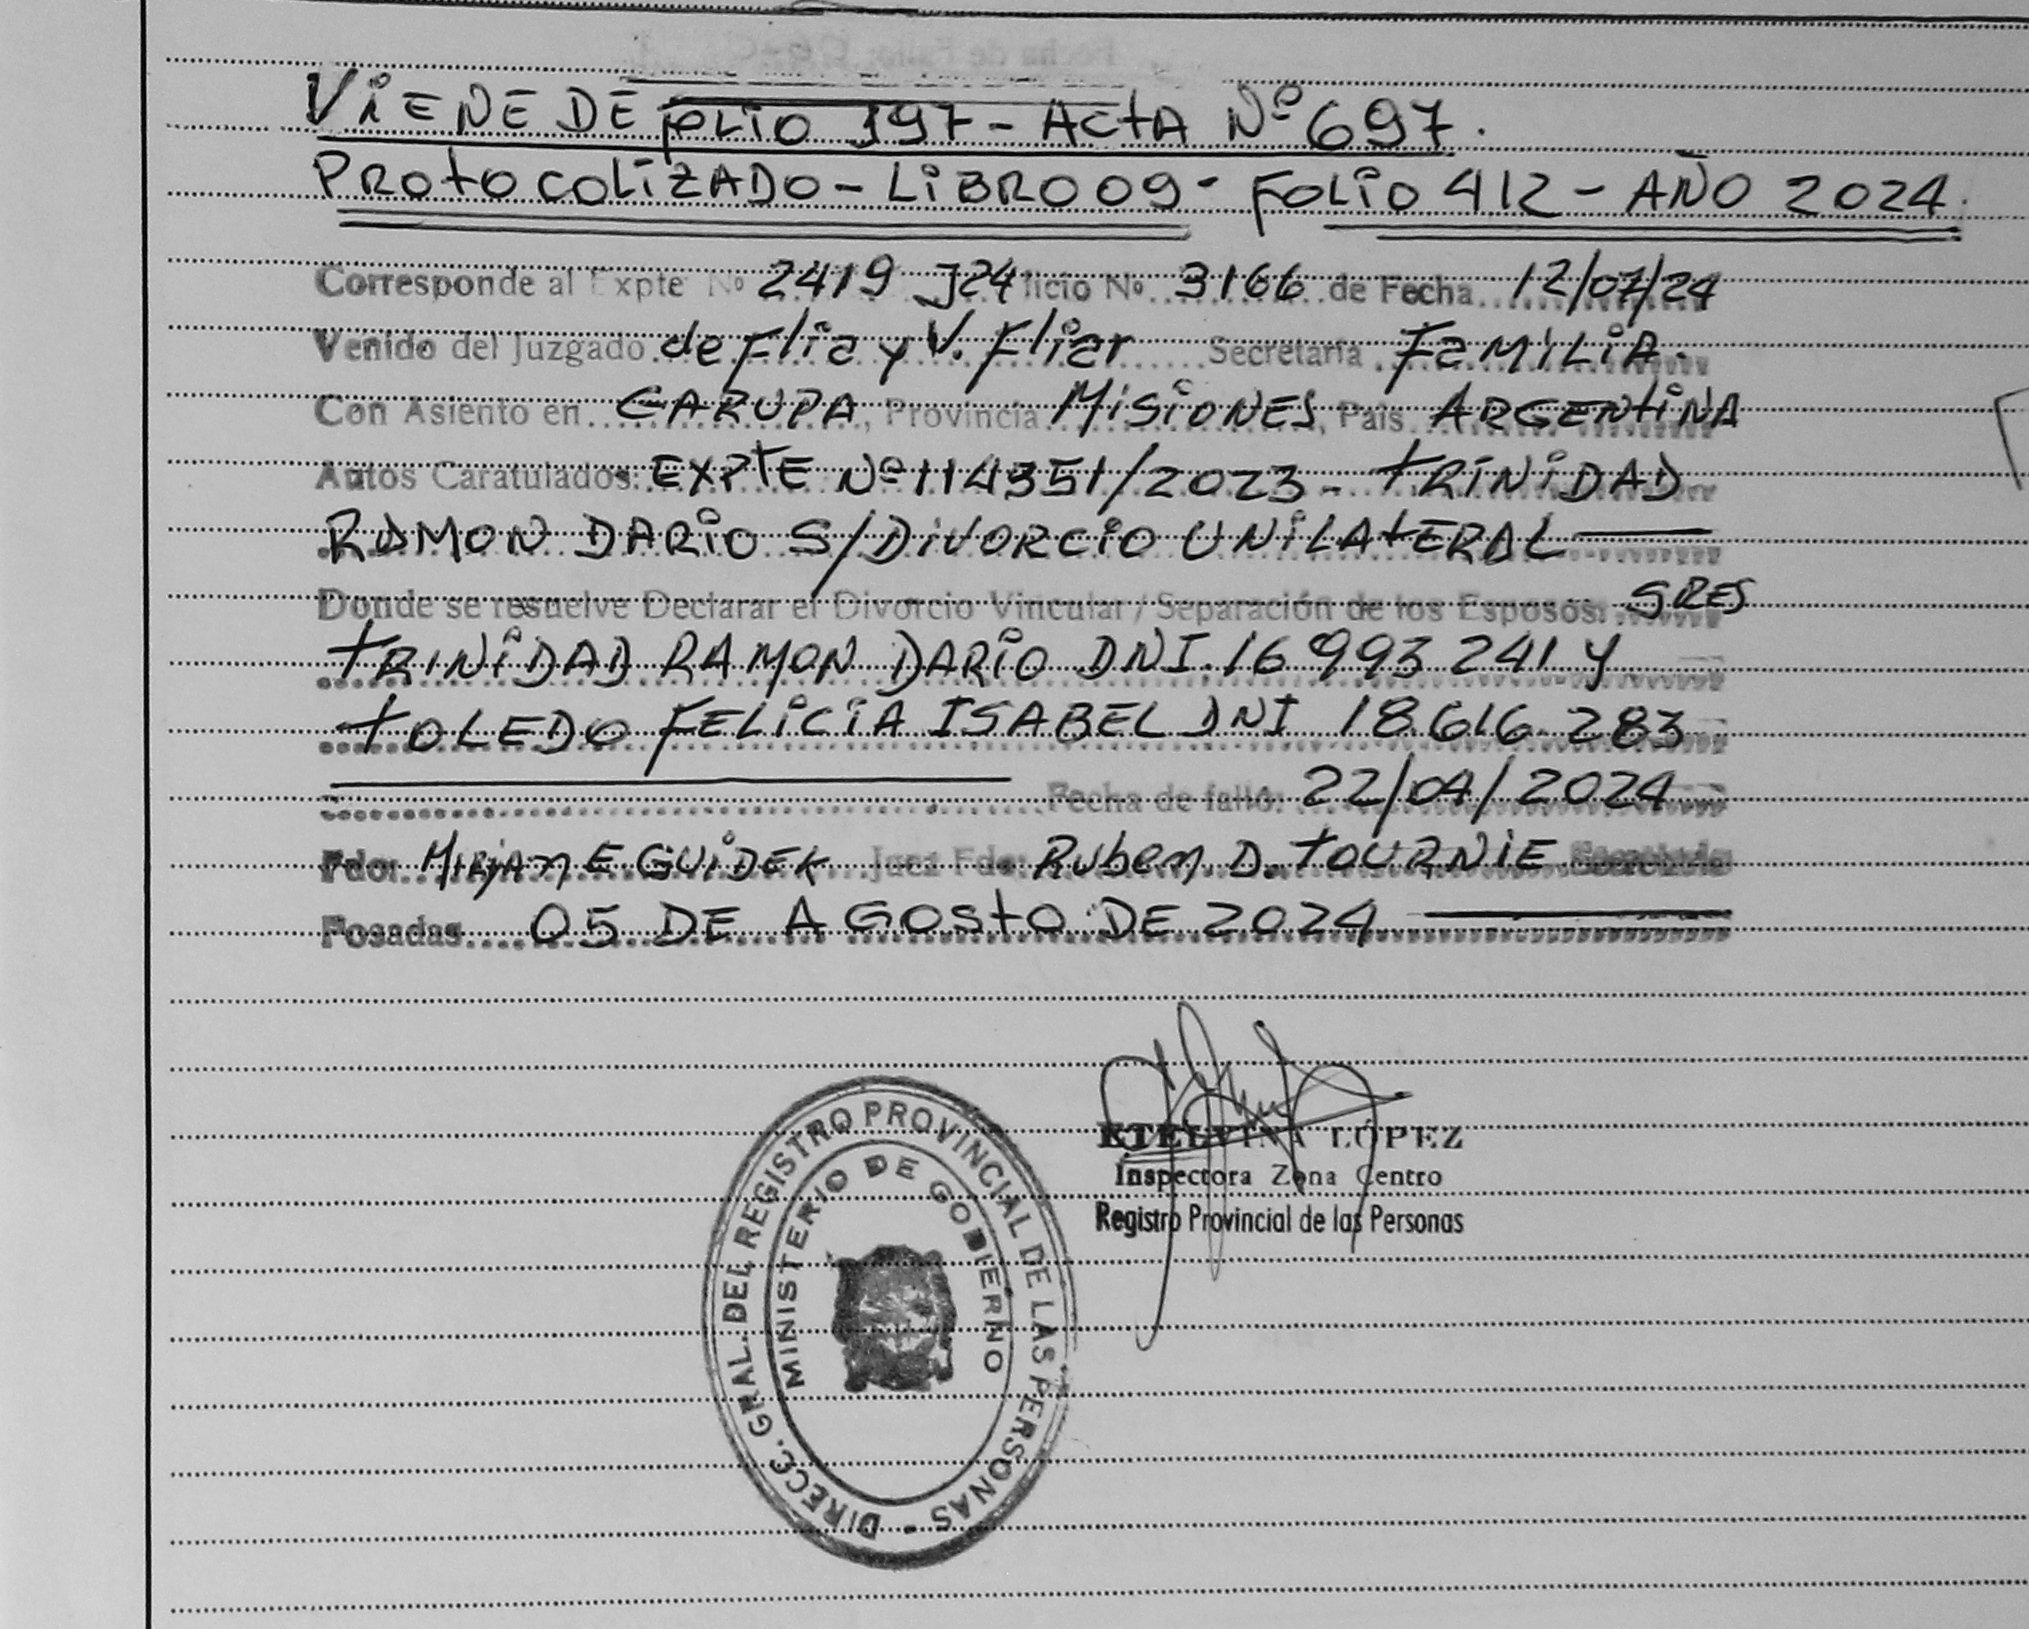 VIENE DE FOLIO 197 - ACTA Nº 697.
PROTOCOLIZADO - LIBRO 09 - FOLIO 412 - AÑO 2024.
Corresponde al Expte Nº 2419 J24 licio Nº 3166 de Fecha 12/07/24
Venido del Juzgado de Flia y V. Fliar Secretaría FAMILIA.
Con Asiento en GARUPA, Provincia MISIONES, País ARGENTINA
Autos Caratulados: EXPTE Nº 114351/2023 - TRINIDAD
RAMON DARIO S/DIVORCIO UNILATERAL
Donde se resuelve Declarar el Divorcio Vincular / Separación de los Esposos: SRES
TRINIDAD RAMON DARIO DNI. 16 993 241 Y
TOLEDO FELICIA ISABEL DNI 18.616.283
Fecha de fallo: 22/04/2024
Fdo: Mirjam E GUIDEK Juez Fdo: Ruben D. TOURNIE Secretario
Posadas 05 DE AGOSTO DE 2024
ETELVINA LÓPEZ
Inspectora Zona Centro
Registro Provincial de las Personas
DIRECC. GRAL. DEL REGISTRO PROVINCIAL DE LAS PERSONAS -
MINISTERIO DE GOBIERNO